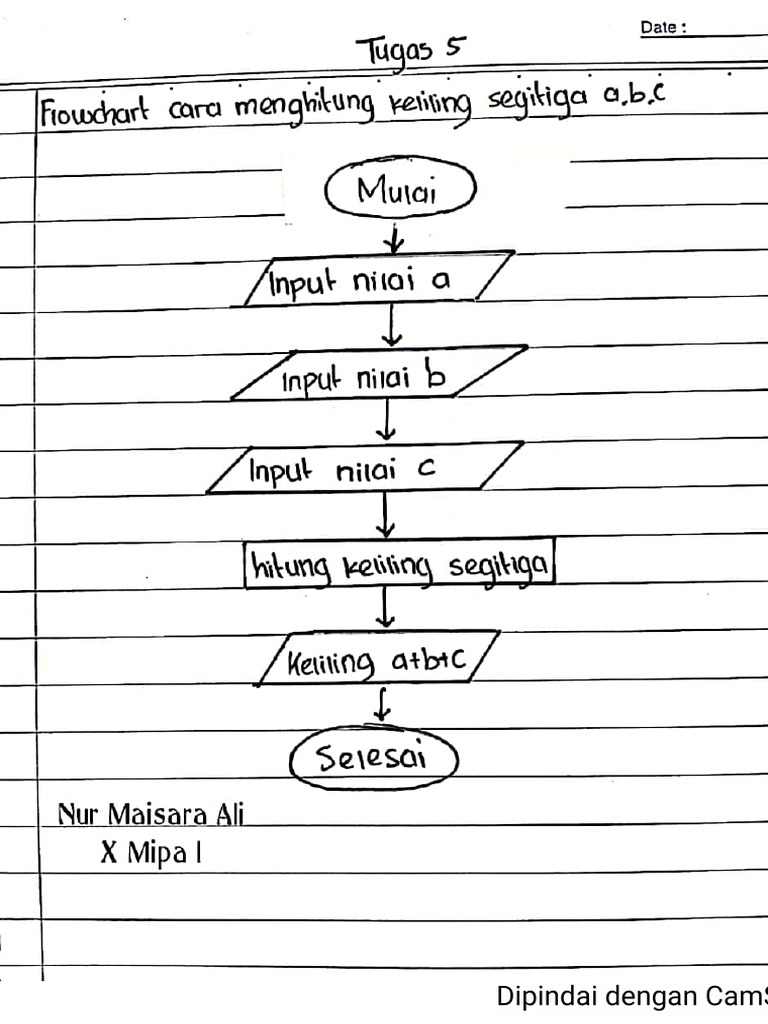 Date :
Tugas 5
Flowchart cara menghitung keliling segitiga a,b,c
Mulai
Input nilai a
Input nilai b
Input nilai c
hitung keliling segitiga
Keliling a+b+c
Selesai
Nur Maisara Ali
X Mipa I
Dipindai dengan CamS